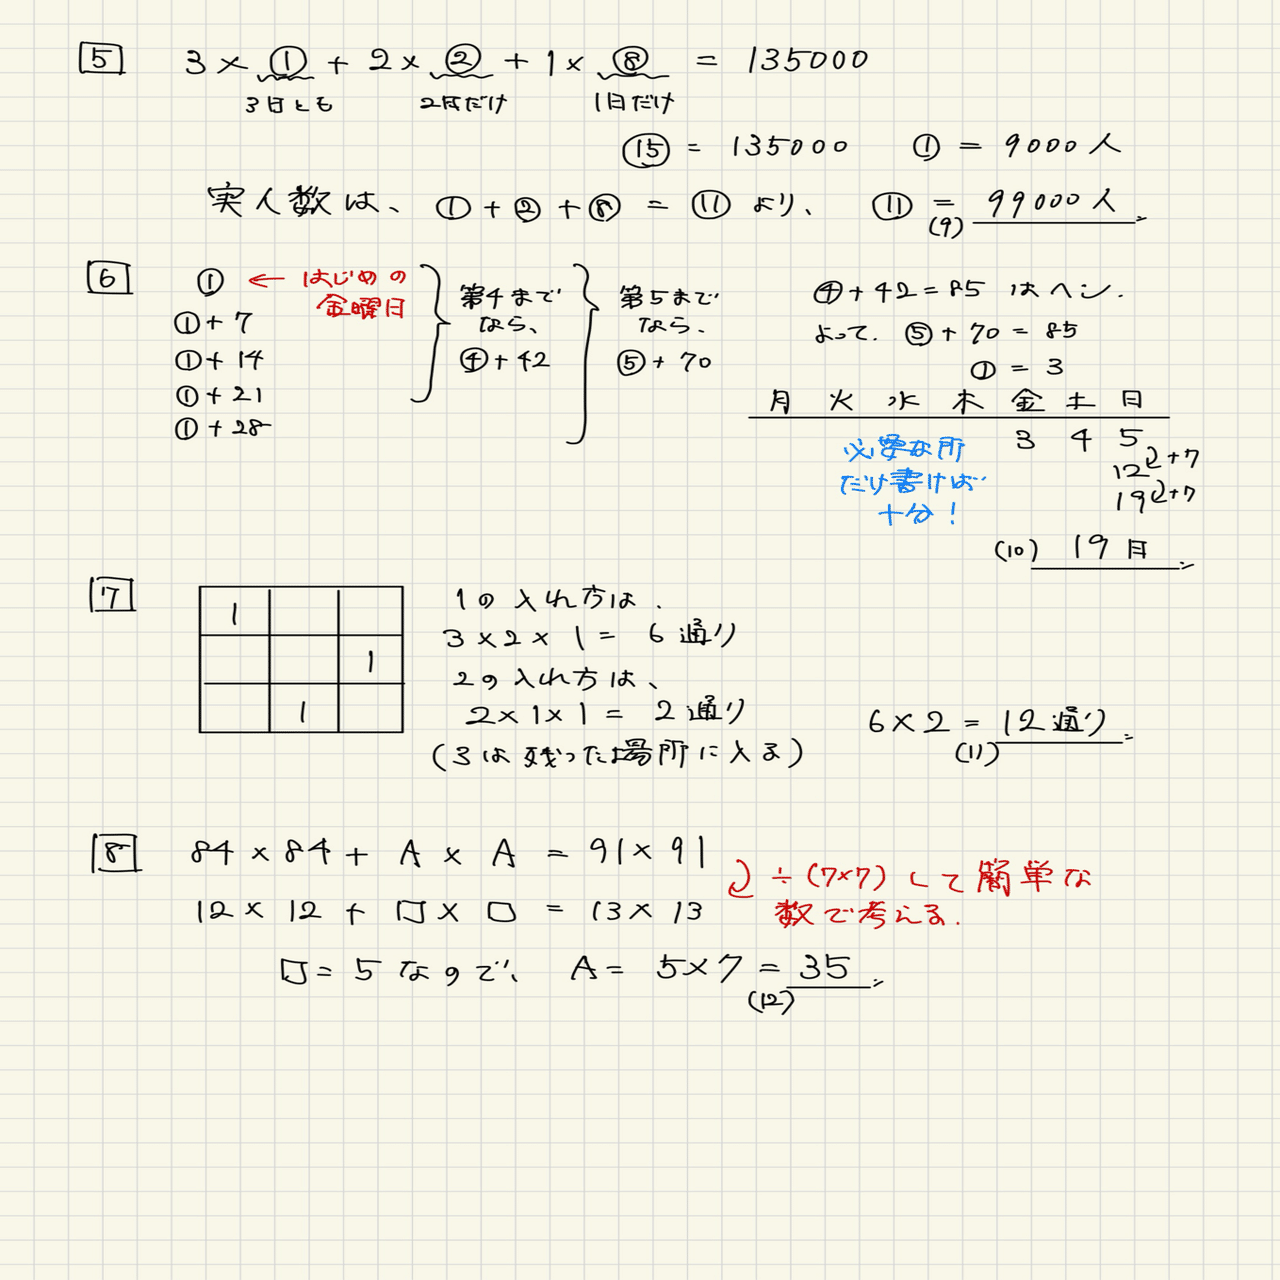 5 3×①+2×②+1×⑧ = 135000
3日とも 2日だけ 1日だけ
⑮ = 135000 ① = 9000人
実人数は、①+②+⑧ = ⑪より、 ⑪ = 99000人
(9)
6 ① ← はじめの
金曜日
①+7
①+14
①+21
①+28
第4まで
なら、
④+42
第5まで
なら、
⑤+70
④+42=85 はヘン.
よって. ⑤+70=85
① = 3
月 火 水 木 金 土 日
3 4 5
12 +7
19 +7
必要な所
だけ書けば
十分!
(10) 19日
7
1
1
1
1の入れ方は.
3×2×1= 6通り
2の入れ方は、
2×1×1= 2通り
(3は残った場所に入る)
6×2 = 12通り
(11)
8 84×84+A×A = 91×91
÷(7×7)して簡単な
数で考える.
12×12+□×□ = 13×13
□=5なので、 A= 5×7 = 35
(12)